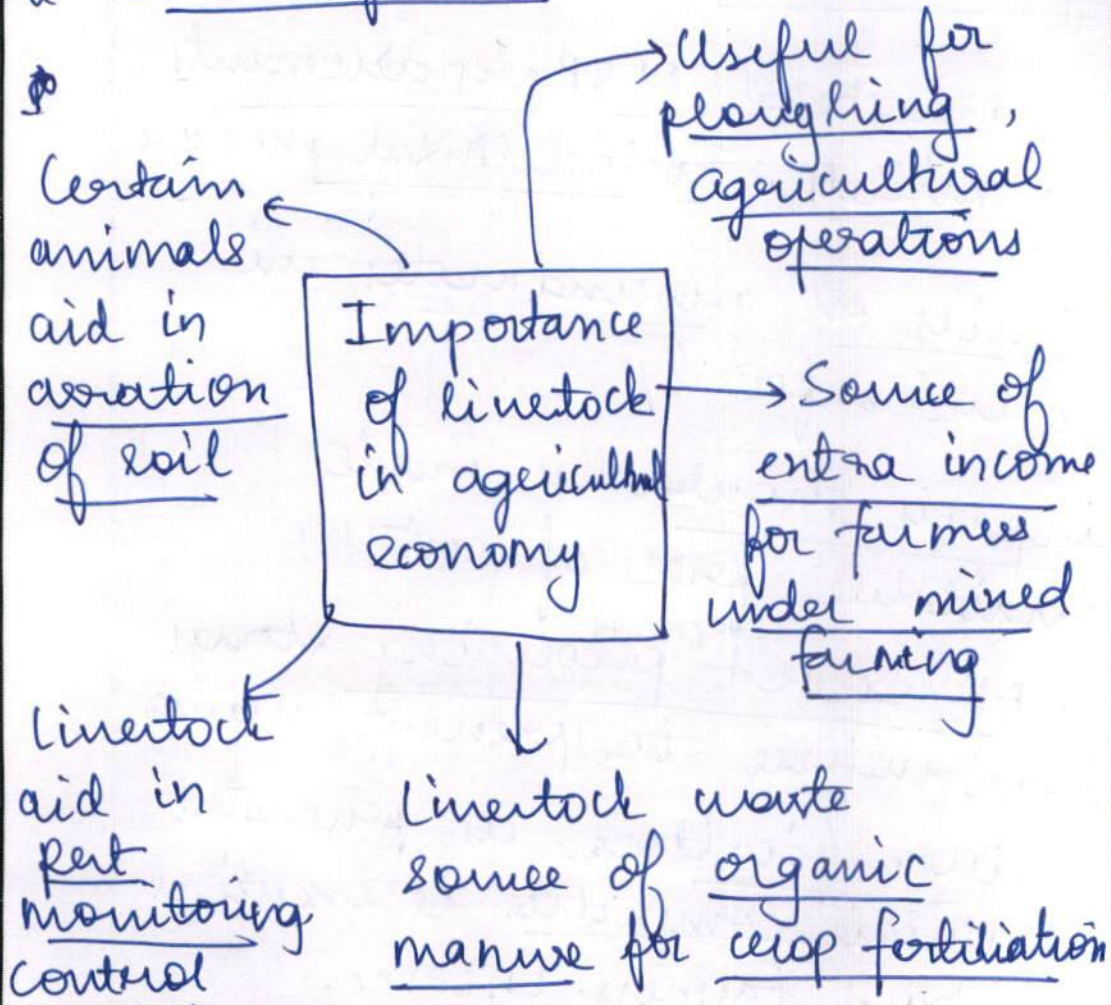 Useful for
ploughing,
agricultural
operations
Certain
animals
aid in
aeration
of soil
Importance
of livestock
in agricultural
economy
Source of
extra income
for farmers
under mixed
farming
Livestock
aid in
pest
monitoring
control
Livestock waste
source of organic
manure for crop fertiliation